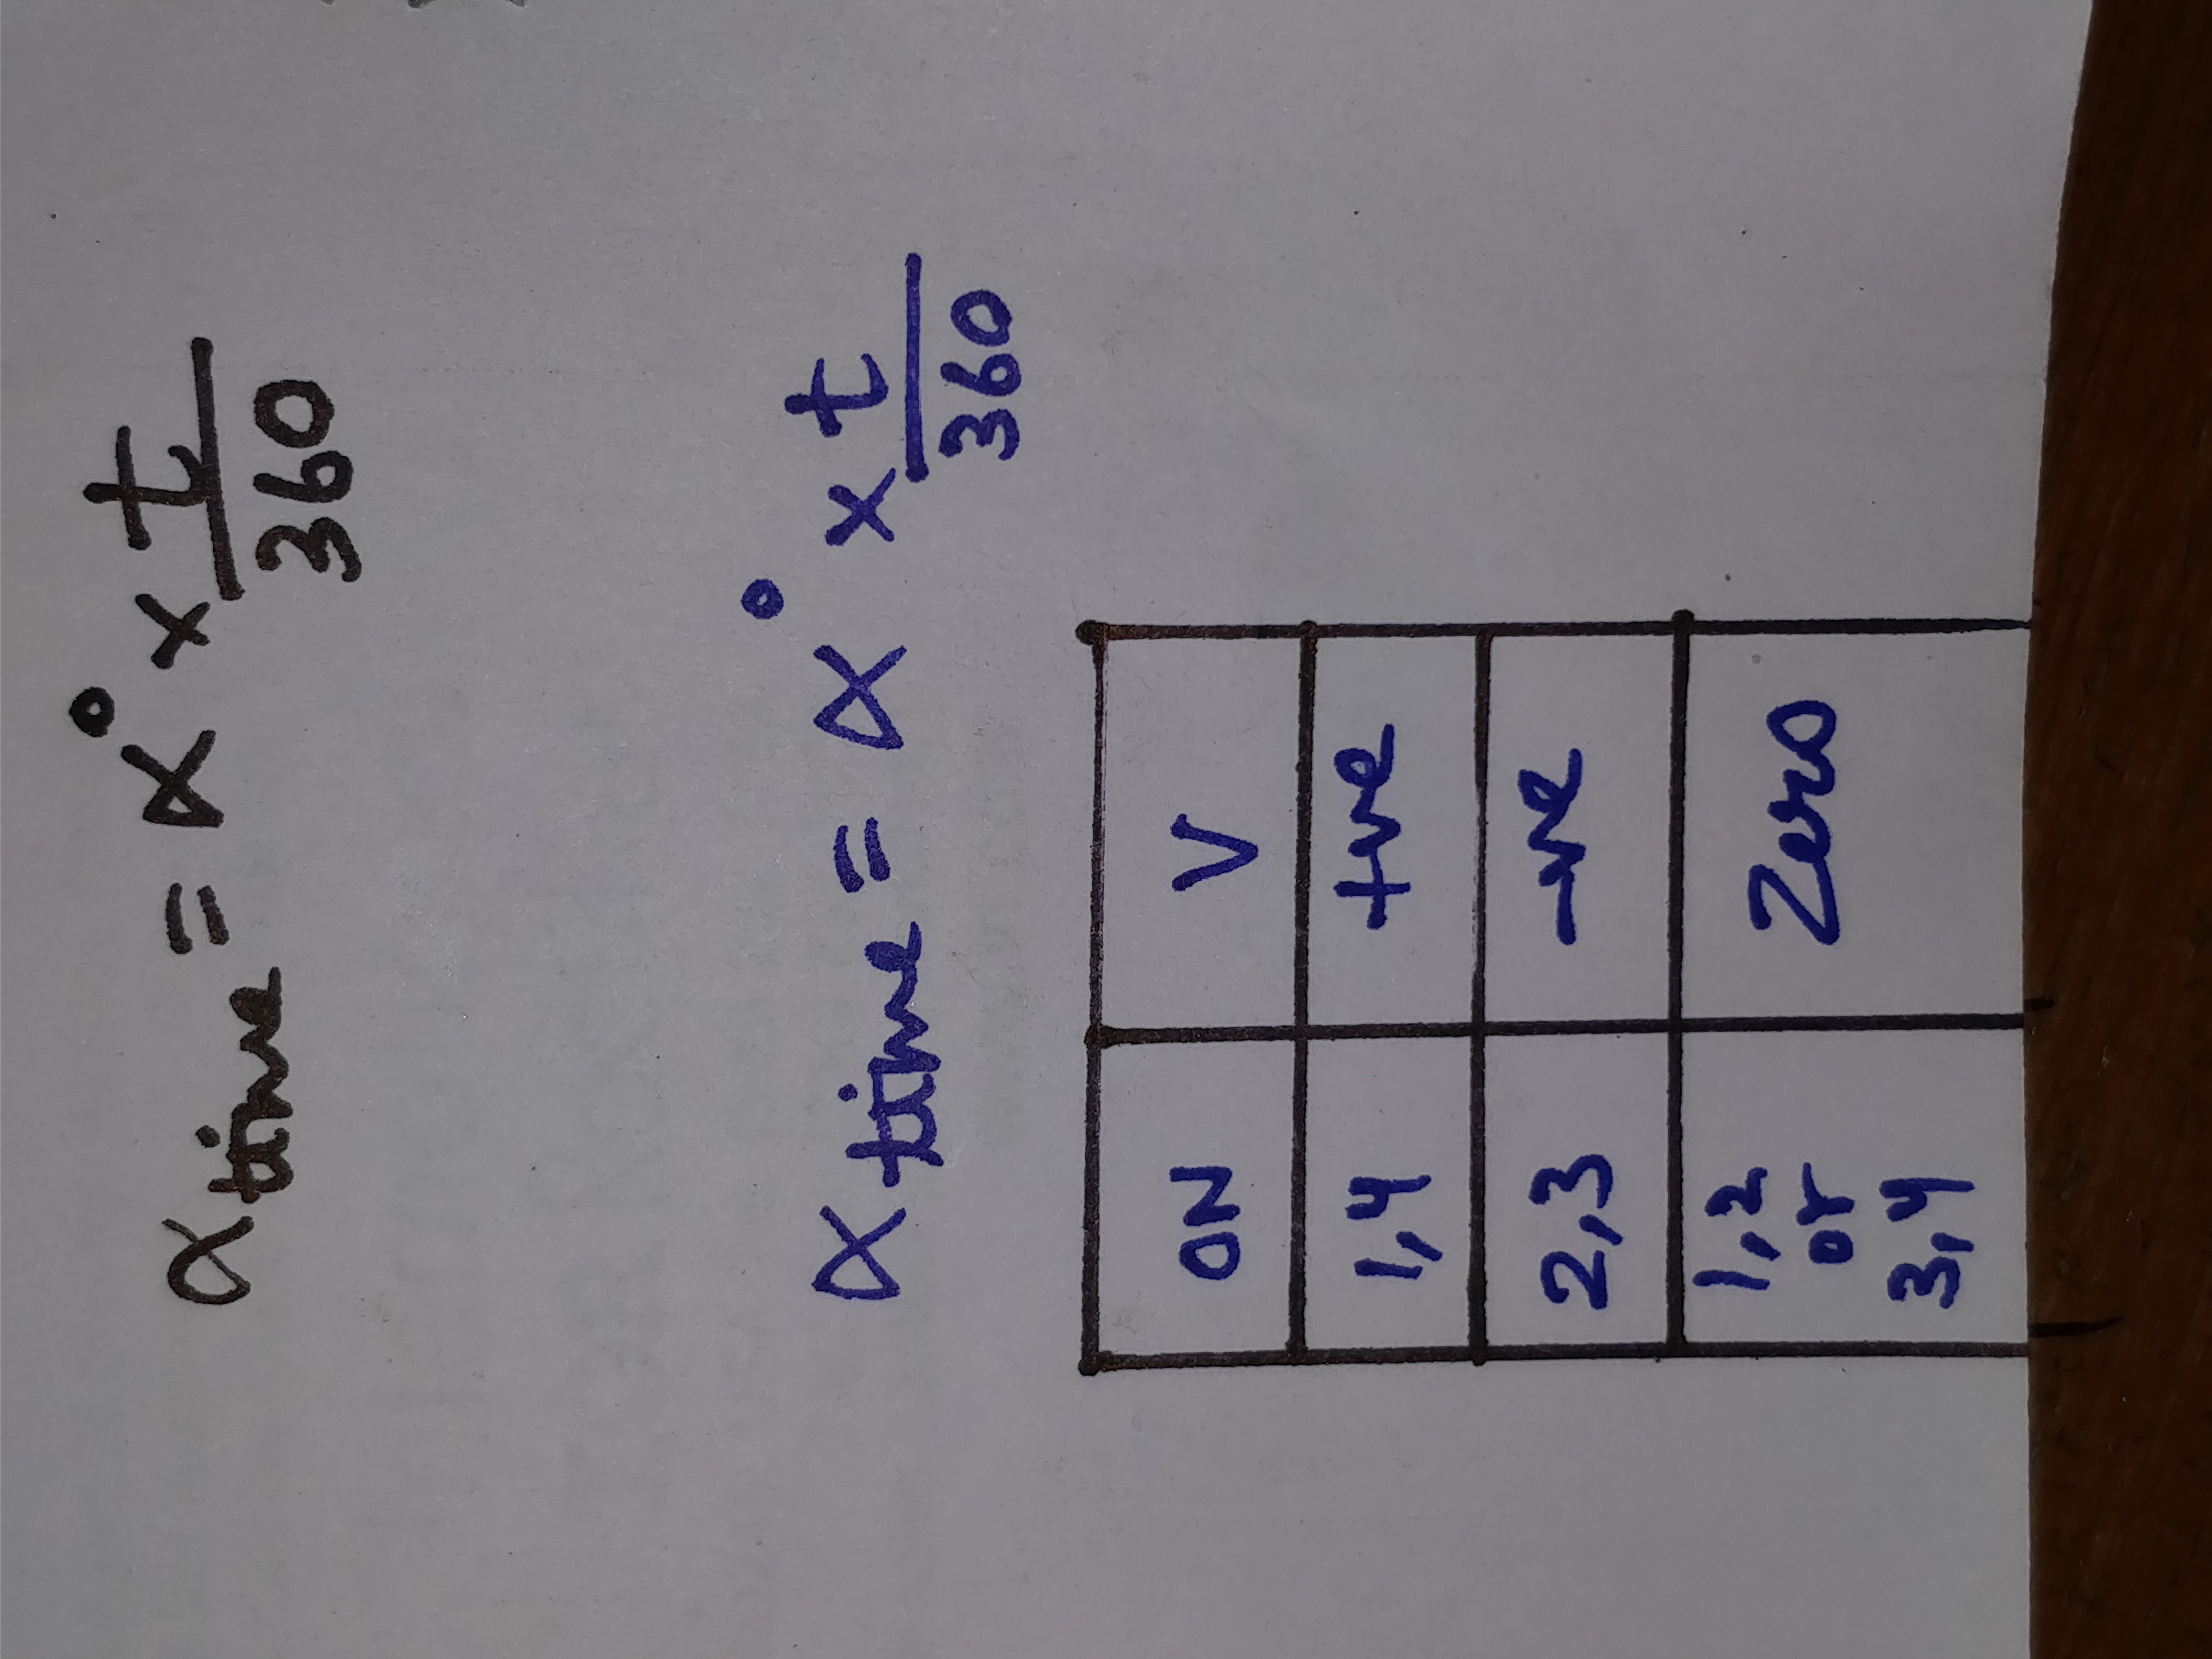 α time = α° × t/360
α time = α° × t/360
ON V
1,4 +ve
2,3 -ve
1,2 or 3,4 Zero